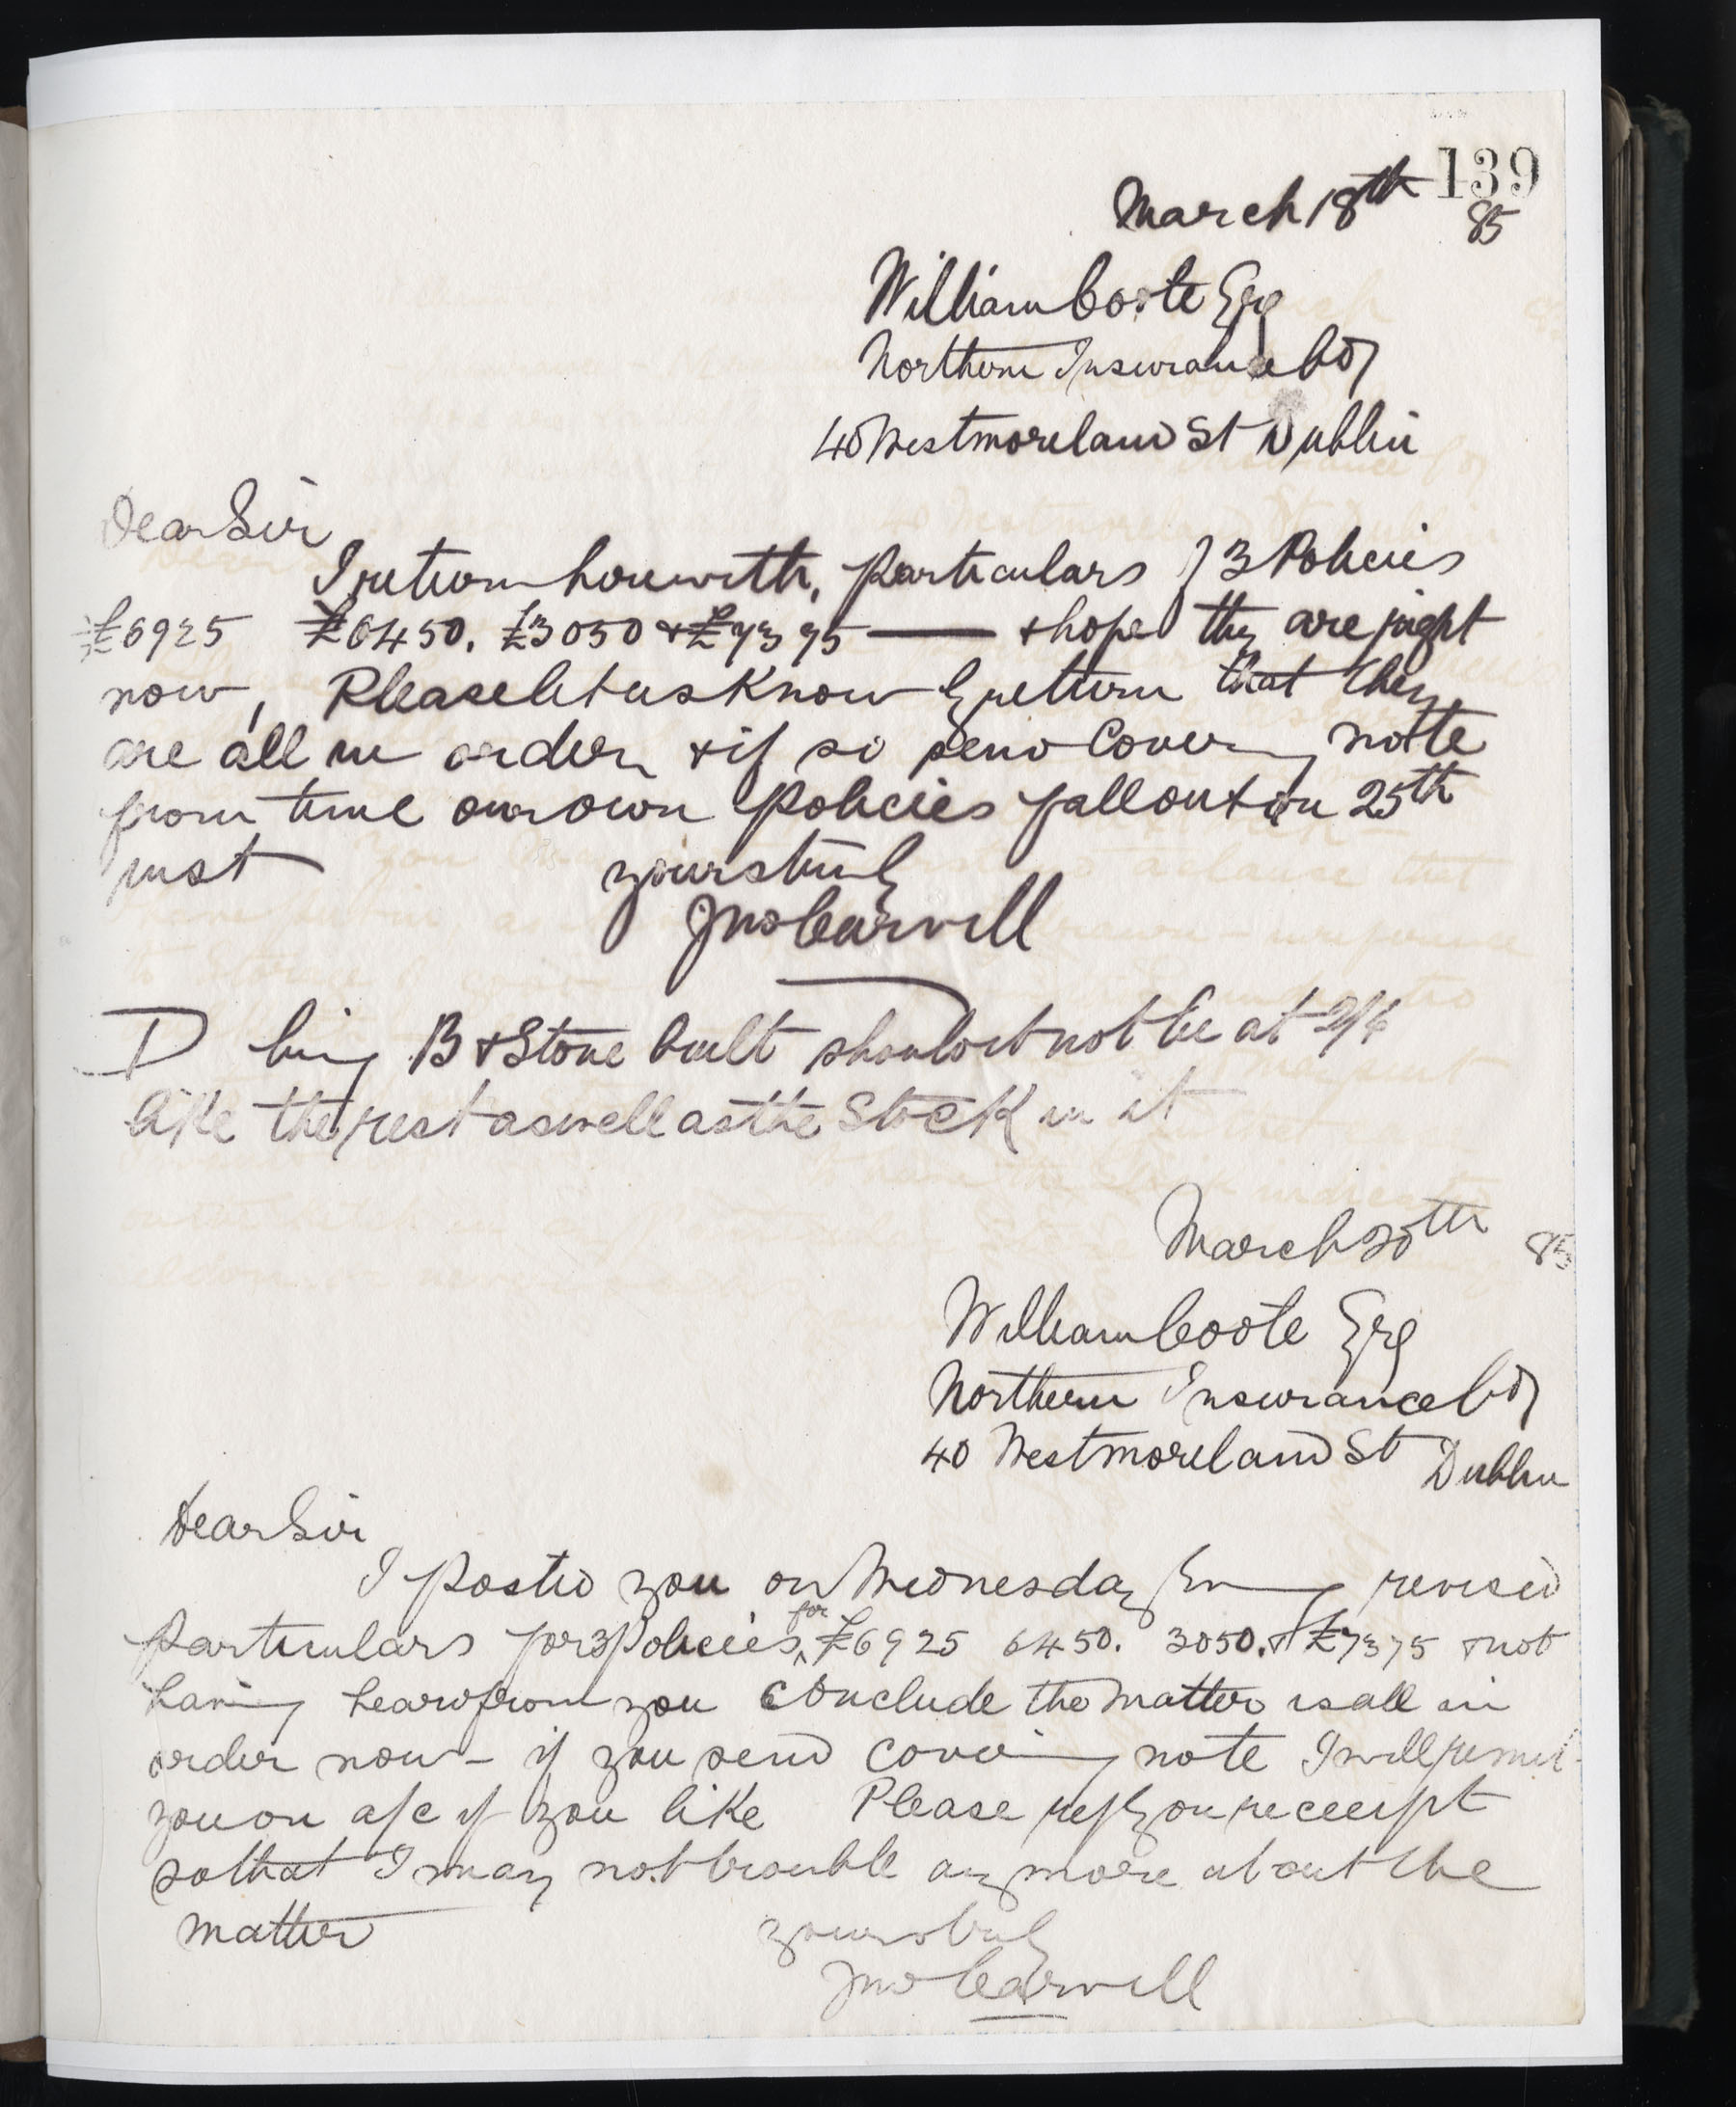 139
March 18th 85
William Coote Esq
Northern Insurance Coy
40 Westmoreland St Dublin
Dear Sir
I return herewith, particulars of 3 Policies
£6925 £6450. £3050 & £7375 — & hope they are right
now, Please let us know by return that they
are all in order & if so send Covering note
from time our own policies fall out on 25th
inst yours truly
Jno Carvill
D being B & Stone built should it not be at 2/6
like the rest as well as the Stock in it
March 20th 85
William Coote Esq
Northern Insurance Coy
40 Westmoreland St Dublin
Dear Sir
I posted you on Wednesday Evening revised
particulars for 3 Policies, for £6925 6450. 3050. & £7375 & not
having heard from you conclude the matter is all in
order now - if you send covering note I will remit
you on a/c if you like Please reply on receeipt
so that I may not trouble any more about the
matter yours truly
Jno Carvill